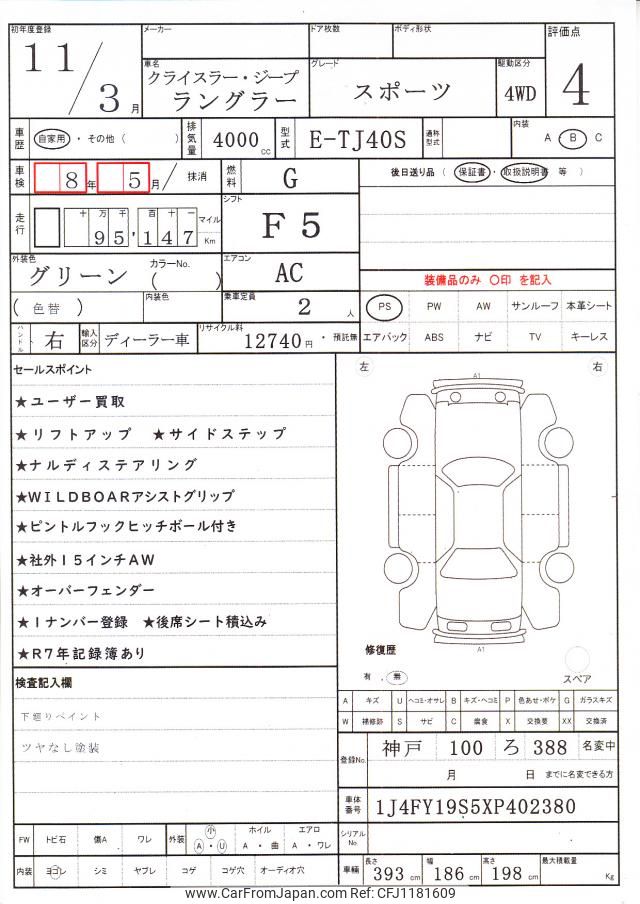 初年度登録 メーカー ドア枚数 ボディ形状 評価点
11/3月
車名 クライスラー・ジープ ラングラー
グレード スポーツ
駆動区分 4WD
4
車歴 自家用・その他( )
排気量 4000cc
型式 E-TJ40S
通称型式
内装 A B C
車検 8年 5月/抹消
燃料 G
後日送り品(保証書・取扱説明書 等)
走行 十万千百十一 マイル
95,147 Km
シフト F5
外装色 グリーン カラーNo.( )
エアコン AC
装備品のみ 〇印 を記入
(色替) 内装色
乗車定員 2人
PS PW AW サンルーフ 本革シート
ハンドル 右
輸入区分 ディーラー車
リサイクル料 12740円・預託無
エアバック ABS ナビ TV キーレス
セールスポイント
★ユーザー買取
★リフトアップ ★サイドステップ
★ナルディステアリング
★WILDBOARアシストグリップ
★ピントルフックヒッチボール付き
★社外15インチAW
★オーバーフェンダー
★1ナンバー登録 ★後席シート積込み
★R7年記録簿あり
左 右
A1
A1
修復歴
有 . 無
スペア
検査記入欄
下廻りペイント
ツヤなし塗装
A キズ U ヘコミ・オサレ B キズ・ヘコミ P 色あせ・ボケ G ガラスキズ
W 補修跡 S サビ C 腐食 X 交換要 XX 交換済
登録No. 神戸 100 ろ 388 名変中
月 日 までに名変できる方
車体番号 1J4FY19S5XP402380
シリアルNo.
FW トビ石 傷A ワレ 外装 小 A・U ホイル A・曲 エアロ A・ワレ
内装 ヨゴレ シミ ヤブレ コゲ コゲ穴 オーディオ穴
車輌 長さ 393cm 幅 186cm 高さ 198cm 最大積載量 Kg
www.CarFromJapan.com Ref: CFJ1181609